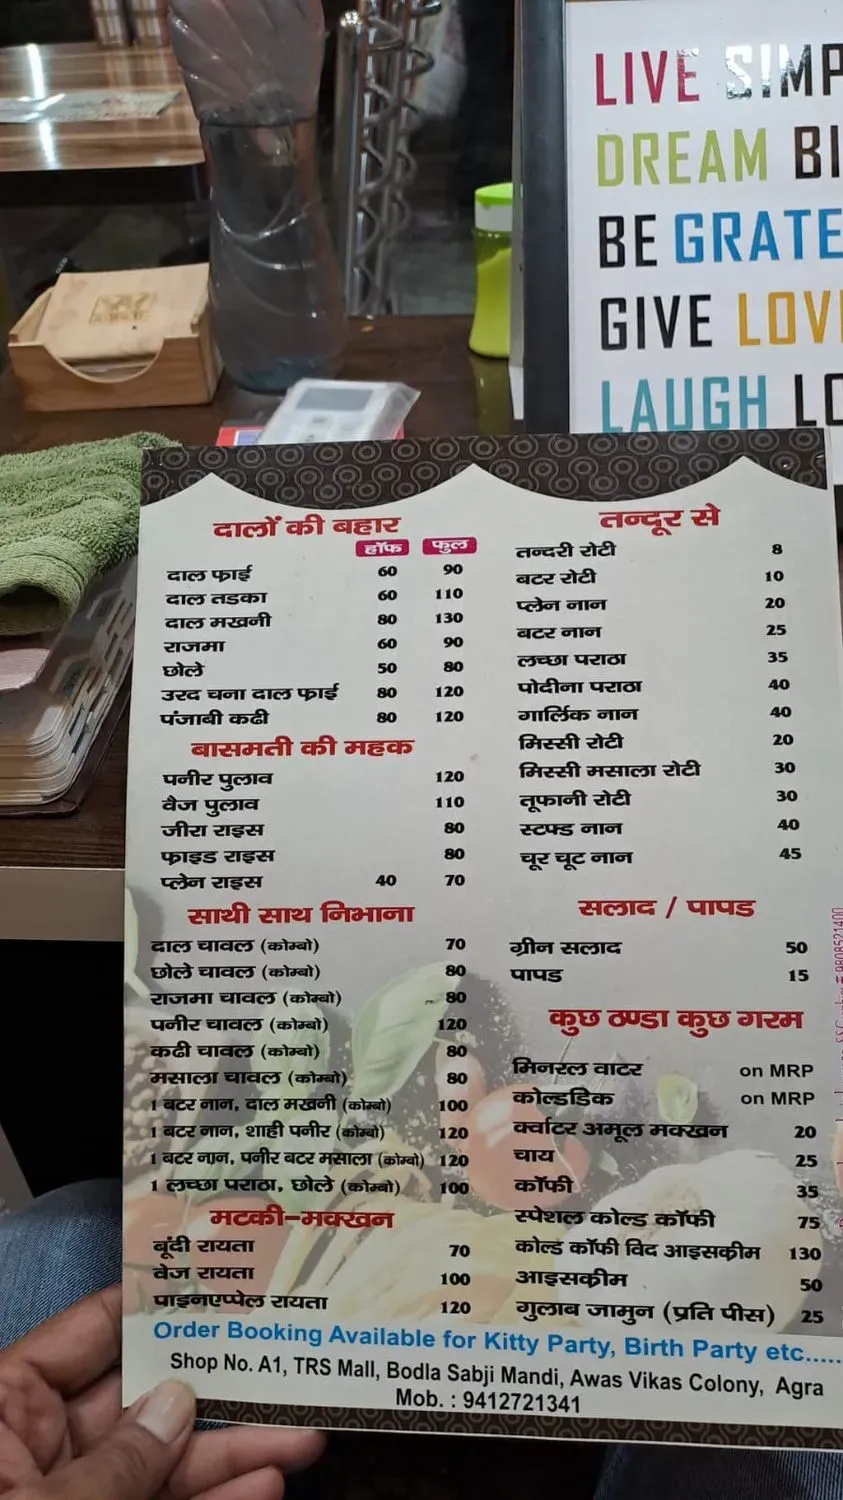 LIVE SIMP
DREAM BI
BE GRATE
GIVE LOV
LAUGH LO
दालों की बहार
हॉफ फुल
दाल फ्राई 60 90
दाल तडका 60 110
दाल मखनी 80 130
राजमा 60 90
छोले 50 80
उरद चना दाल फ्राई 80 120
पंजाबी कढी 80 120
बासमती की महक
पनीर पुलाव 120
वैज पुलाव 110
जीरा राइस 80
फ्राइड राइस 80
प्लेन राइस 40 70
साथी साथ निभाना
दाल चावल (कोम्बो) 70
छोले चावल (कोम्बो) 80
राजमा चावल (कोम्बो) 80
पनीर चावल (कोम्बो) 120
कढी चावल (कोम्बो) 80
मसाला चावल (कोम्बो) 80
1 बटर नान, दाल मखनी (कोम्बो) 100
1 बटर नान, शाही पनीर (कोम्बो) 120
1 बटर नान, पनीर बटर मसाला (कोम्बो) 120
1 लच्छा पराठा, छोले (कोम्बो) 100
मटकी-मक्खन
बूंदी रायता 70
वेज रायता 100
पाइनएप्पेल रायता 120
तन्दूर से
तन्दरी रोटी 8
बटर रोटी 10
प्लेन नान 20
बटर नान 25
लच्छा पराठा 35
पोदीना पराठा 40
गार्लिक नान 40
मिस्सी रोटी 20
मिस्सी मसाला रोटी 30
तूफानी रोटी 30
स्टफ्ड नान 40
चूर चूट नान 45
सलाद / पापड
ग्रीन सलाद 50
पापड 15
कुछ ठण्डा कुछ गरम
मिनरल वाटर on MRP
कोल्डडिक on MRP
क्वाटर अमूल मक्खन 20
चाय 25
कॉफी 35
स्पेशल कोल्ड कॉफी 75
कोल्ड कॉफी विद आइसक्रीम 130
आइसक्रीम 50
गुलाब जामुन (प्रति पीस) 25
Order Booking Available for Kitty Party, Birth Party etc.....
Shop No. A1, TRS Mall, Bodla Sabji Mandi, Awas Vikas Colony, Agra
Mob. : 9412721341
# 9808521400